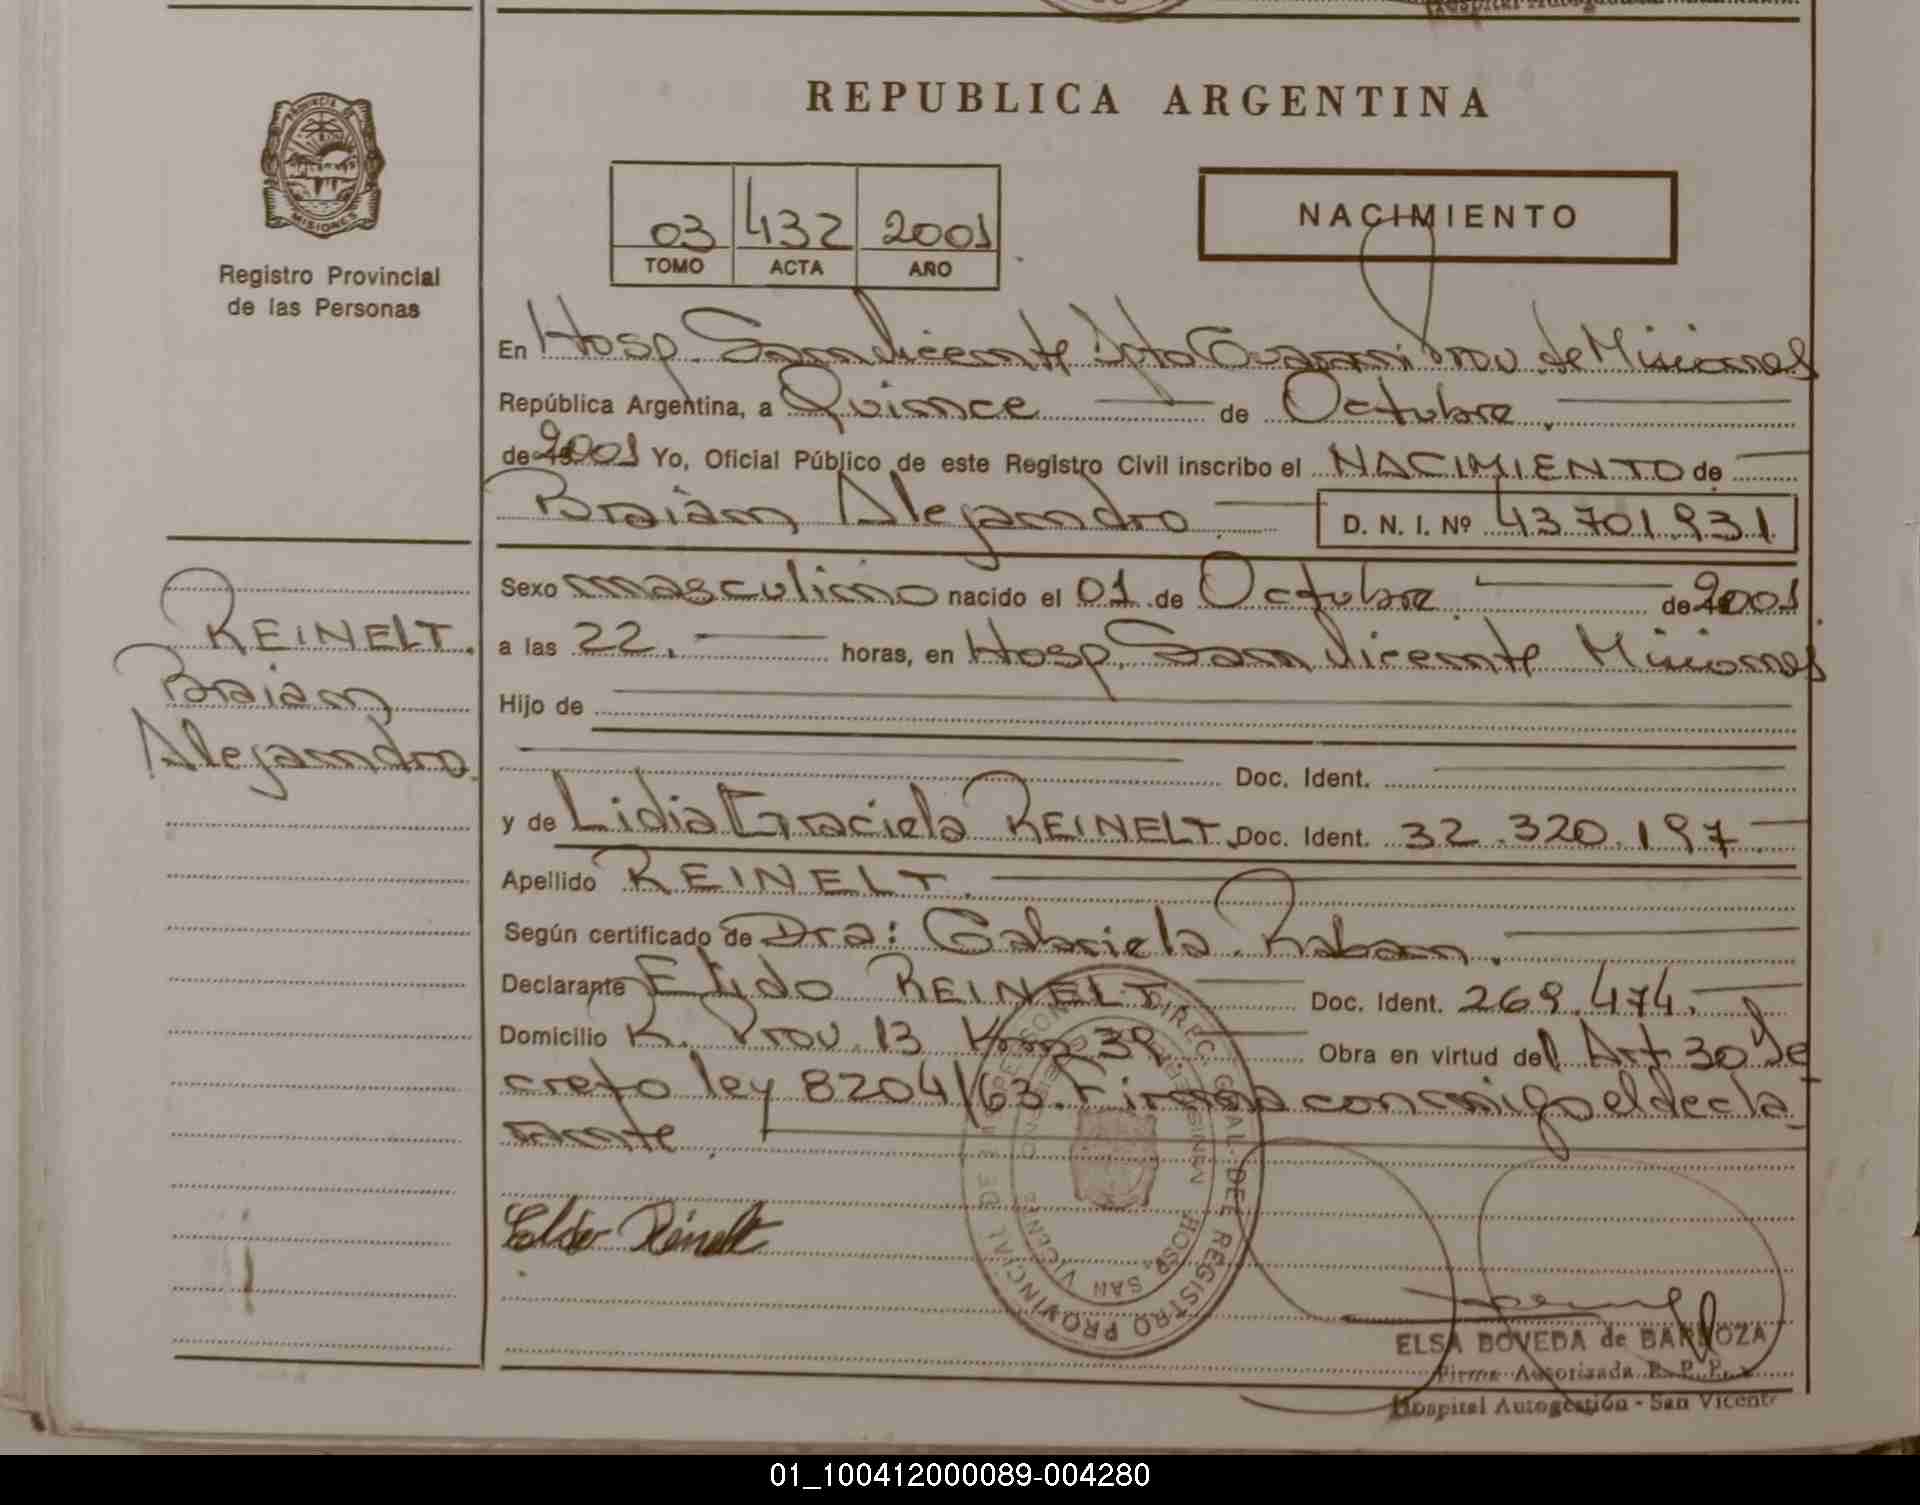 Hospital Autogestión
REPUBLICA ARGENTINA
PROVINCIA DE
MISIONES
Registro Provincial
de las Personas
03 432 2001
TOMO ACTA AÑO
NACIMIENTO
En Hosp. San Vicente Dpto Guaraní Prov. de Misiones
República Argentina, a Quince de Octubre
de 2001 Yo, Oficial Público de este Registro Civil inscribo el NACIMIENTO de
Braian Alejandro D. N. I. Nº 43.701.931
REINELT.
Braian
Alejandro.
Sexo masculino nacido el 01 de Octubre de 2001
a las 22. horas, en Hosp. San Vicente Misiones
Hijo de
Doc. Ident.
y de Lidia Graciela REINELT. Doc. Ident. 32.320.197
Apellido REINELT.
Según certificado de Dra: Gabriela Raban.
Declarante REINELT. Doc. Ident. 269.474.
Domicilio R. Prov. 13 Km 39. Obra en virtud del Art 30 De
creto ley 8204/63. Firma conmigo el decla
rante.
Reinelt
DIREC. GRAL. DEL REGISTRO PROVINCIAL DE LAS PERSONAS
HOSP. SAN VICENTE
ELSA BOVEDA de BARBOZA
Firma Autorizada R. P. P.
Hospital Autogestión - San Vicente
01_100412000089-004280